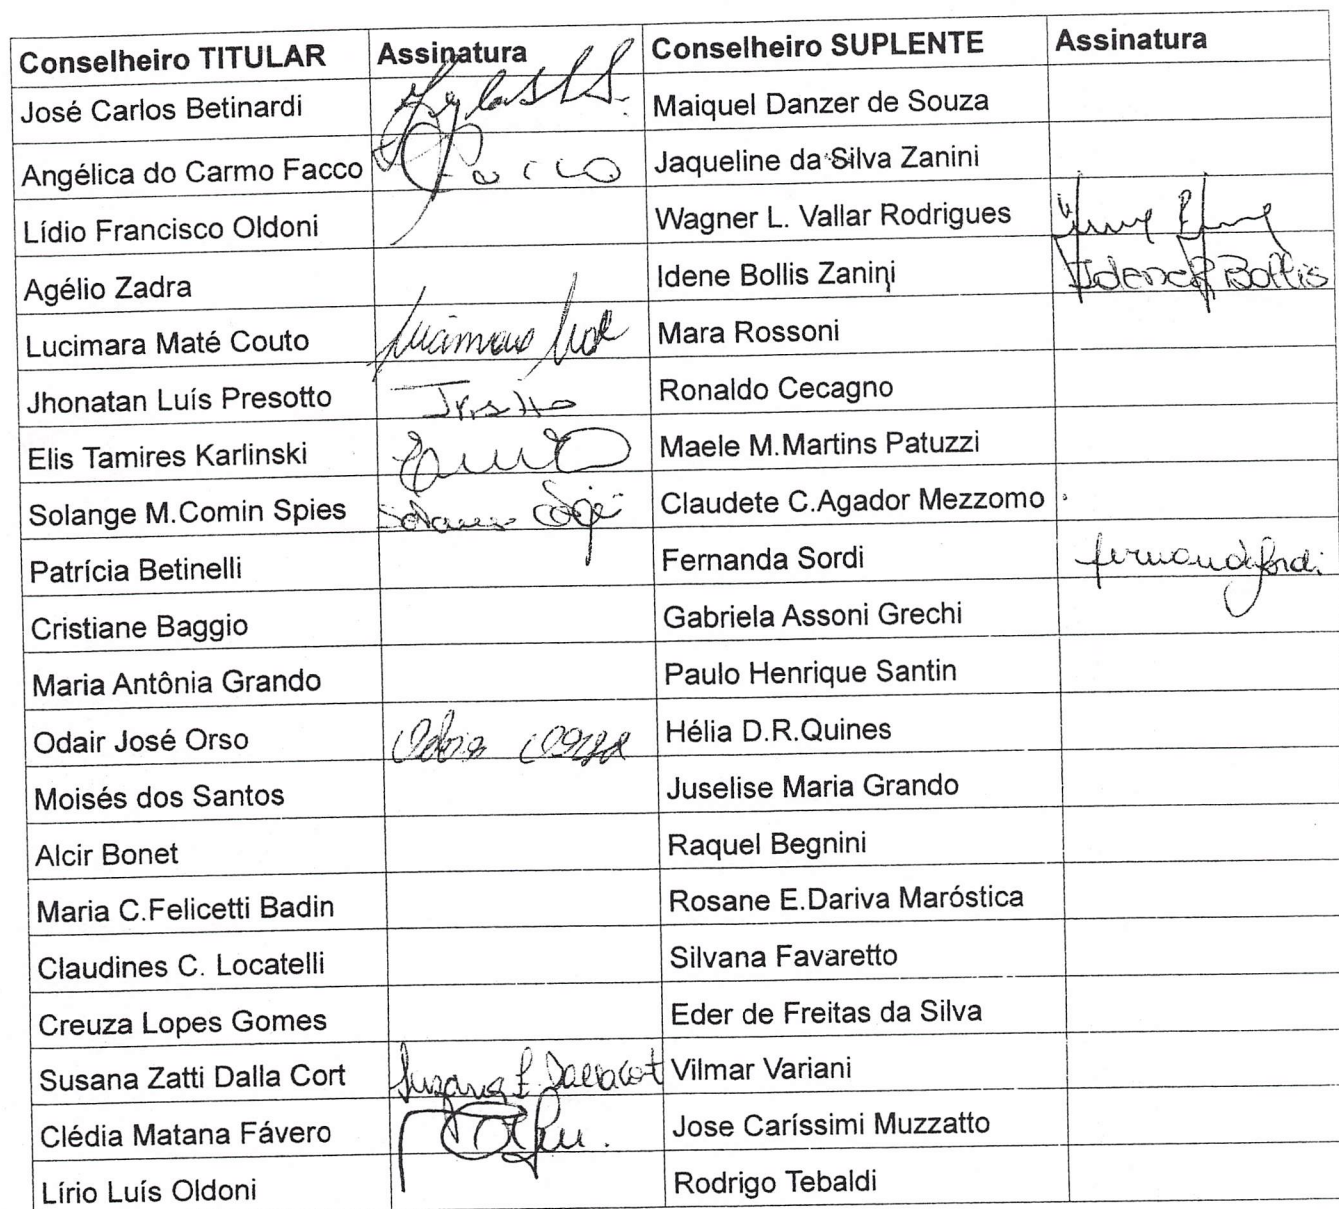 Conselheiro TITULAR Assinatura Conselheiro SUPLENTE Assinatura
José Carlos Betinardi Maiquel Danzer de Souza
Angélica do Carmo Facco Facco Jaqueline da Silva Zanini
Lídio Francisco Oldoni Wagner L. Vallar Rodrigues
Agélio Zadra Idene Bollis Zanini Bollis
Lucimara Maté Couto Mara Rossoni
Jhonatan Luís Presotto Ronaldo Cecagno
Elis Tamires Karlinski Maele M.Martins Patuzzi
Solange M.Comin Spies Claudete C.Agador Mezzomo
Patrícia Betinelli Fernanda Sordi
Cristiane Baggio Gabriela Assoni Grechi
Maria Antônia Grando Paulo Henrique Santin
Odair José Orso Hélia D.R.Quines
Moisés dos Santos Juselise Maria Grando
Alcir Bonet Raquel Begnini
Maria C.Felicetti Badin Rosane E.Dariva Maróstica
Claudines C. Locatelli Silvana Favaretto
Creuza Lopes Gomes Eder de Freitas da Silva
Susana Zatti Dalla Cort Vilmar Variani
Clédia Matana Fávero Jose Caríssimi Muzzatto
Lírio Luís Oldoni Rodrigo Tebaldi